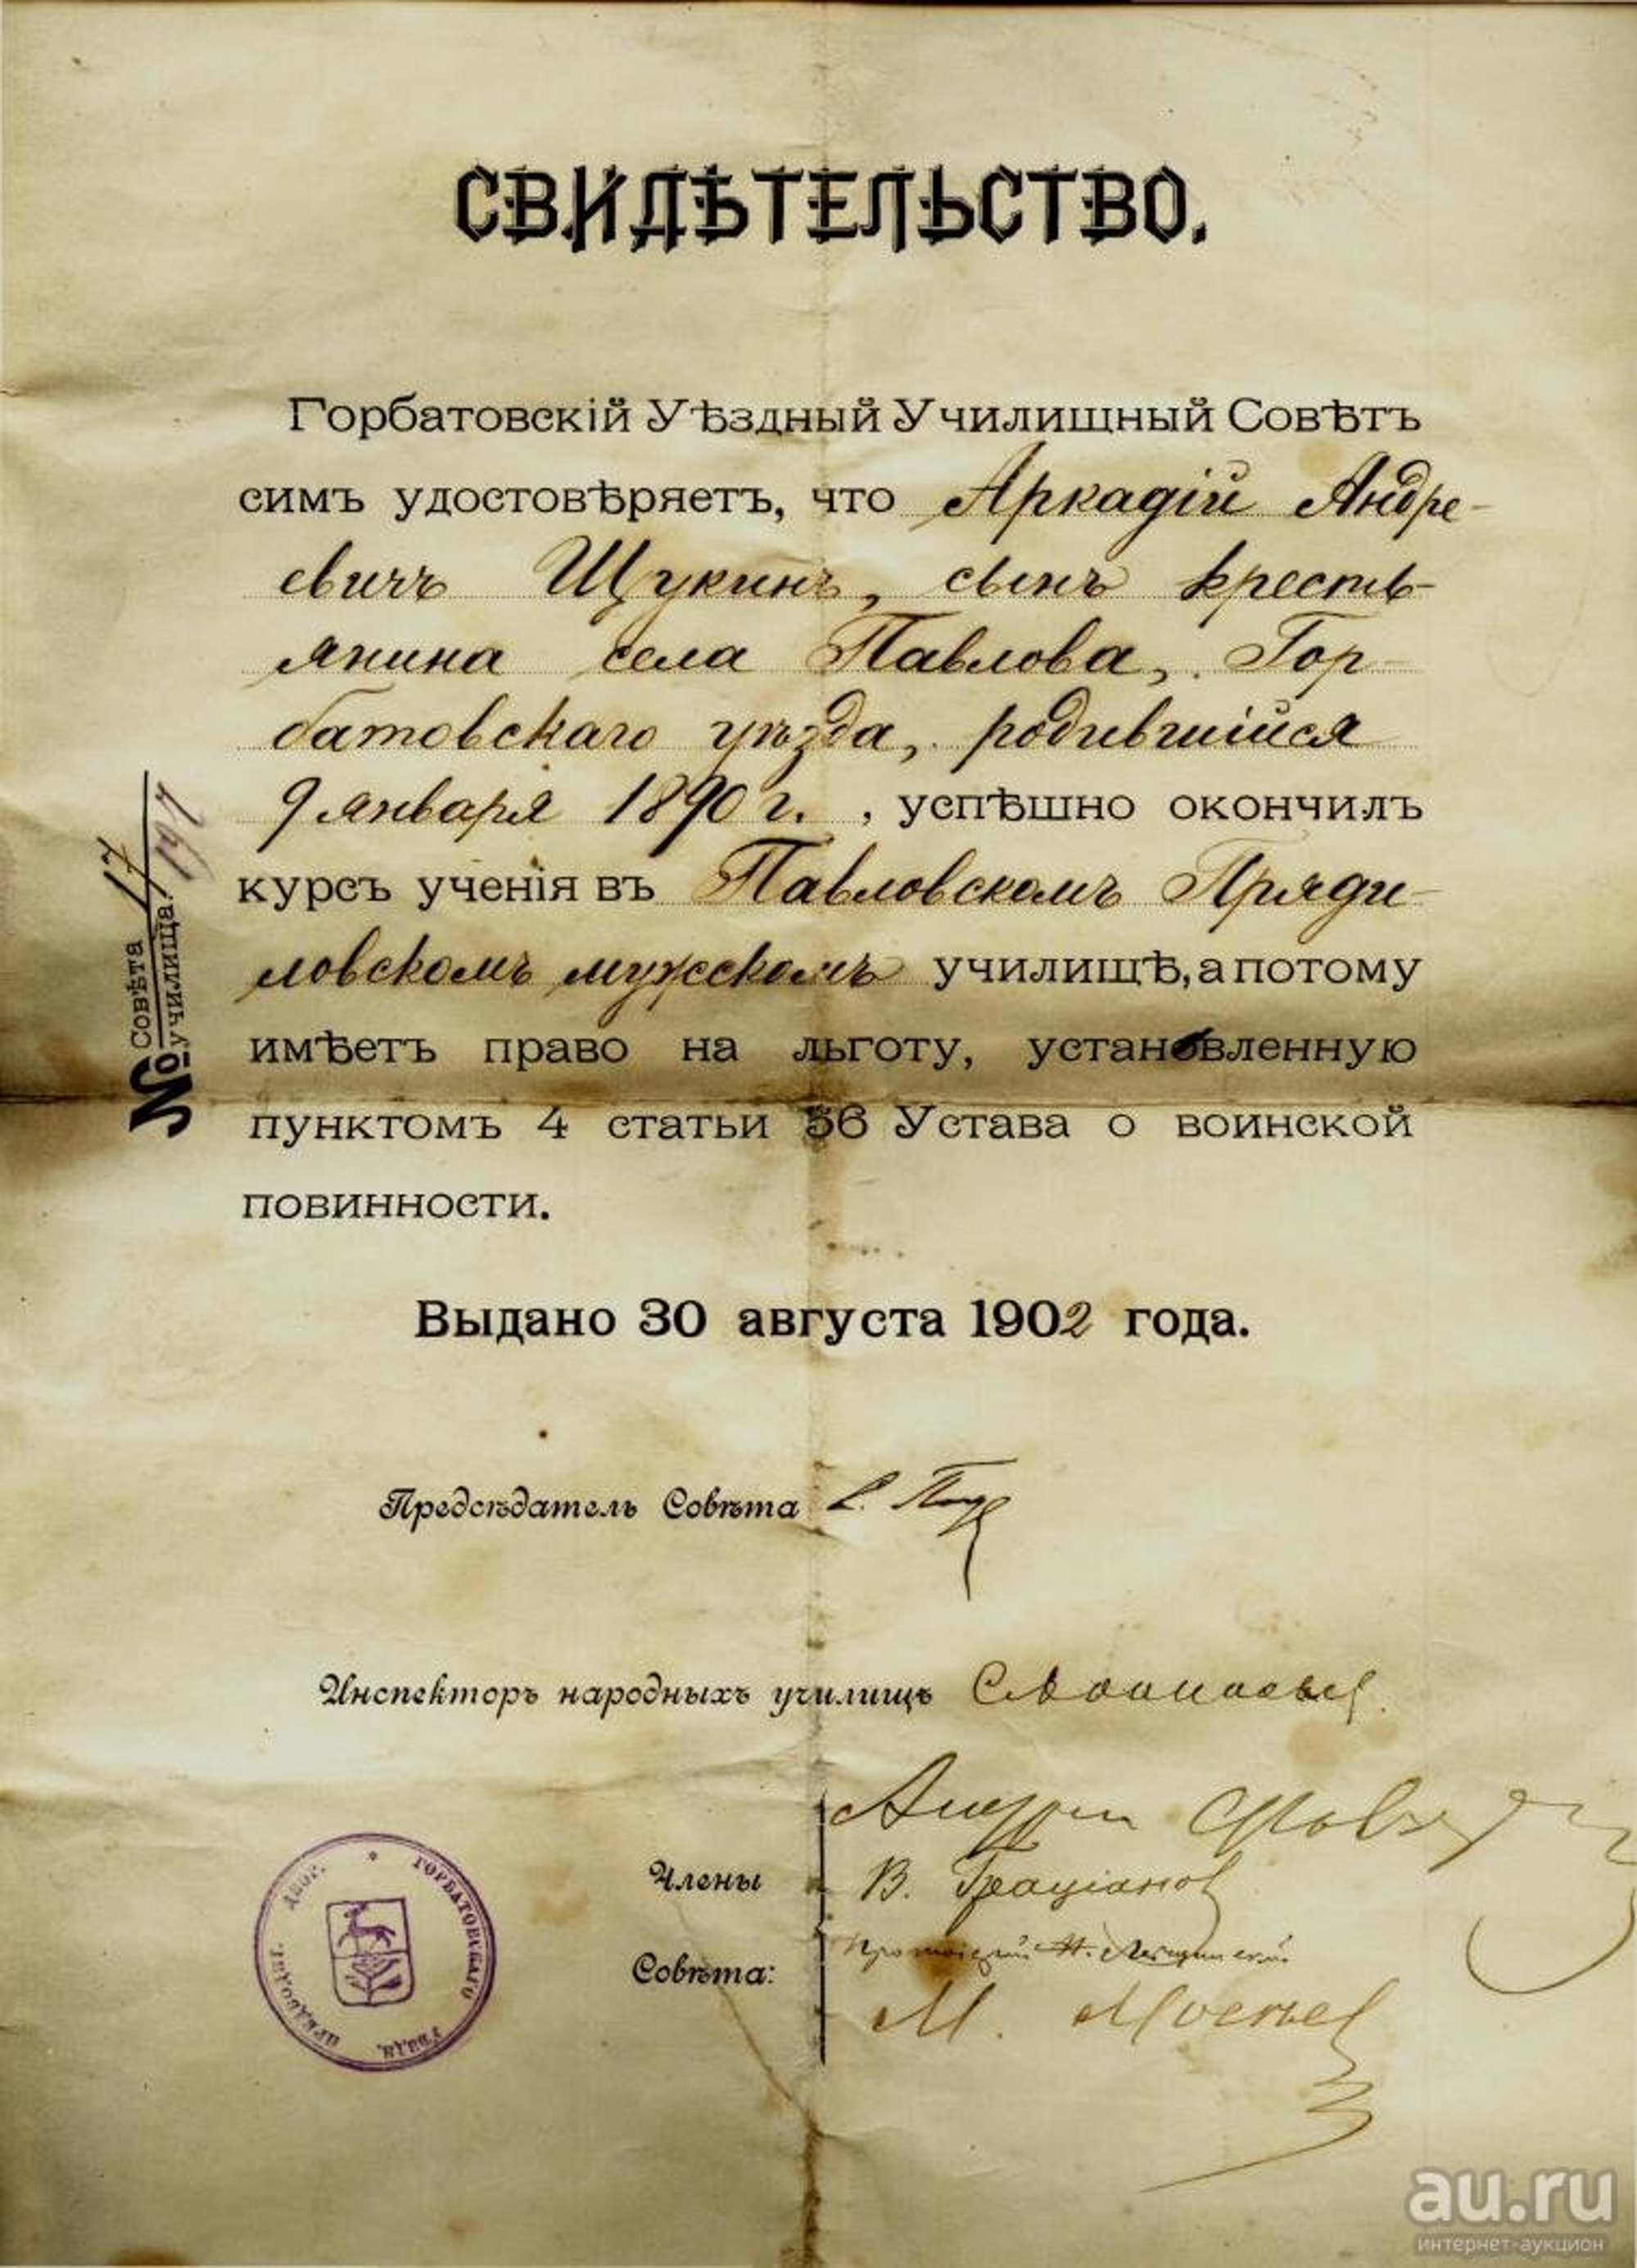 СВИДѢТЕЛЬСТВО.
Горбатовскій Уѣздный Училищный Совѣтъ
симъ удостовѣряетъ, что Аркадій Андре-
евичъ Щукинъ, сынъ кресть-
янина села Павлова, Гор-
батовскаго уѣзда, родившійся
9 января 1890 г. , успѣшно окончилъ
курсъ ученія въ Павловскомъ Пряди-
ловскомъ мужскомъ училищѣ, а потому
имѣетъ право на льготу, установленную
пунктомъ 4 статьи 56 Устава о воинской
повинности.
№ Совѣта 17
училища.
Выдано 30 августа 1902 года.
Предсѣдатель Совѣта
Инспекторъ народныхъ училищъ
Члены
Совѣта:
В. Граціанов
М.
ПРЕДВОДИТ. ДВОР. * ГОРБАТОВСКАГО УѢЗДА.
au.ru
интернет-аукцион